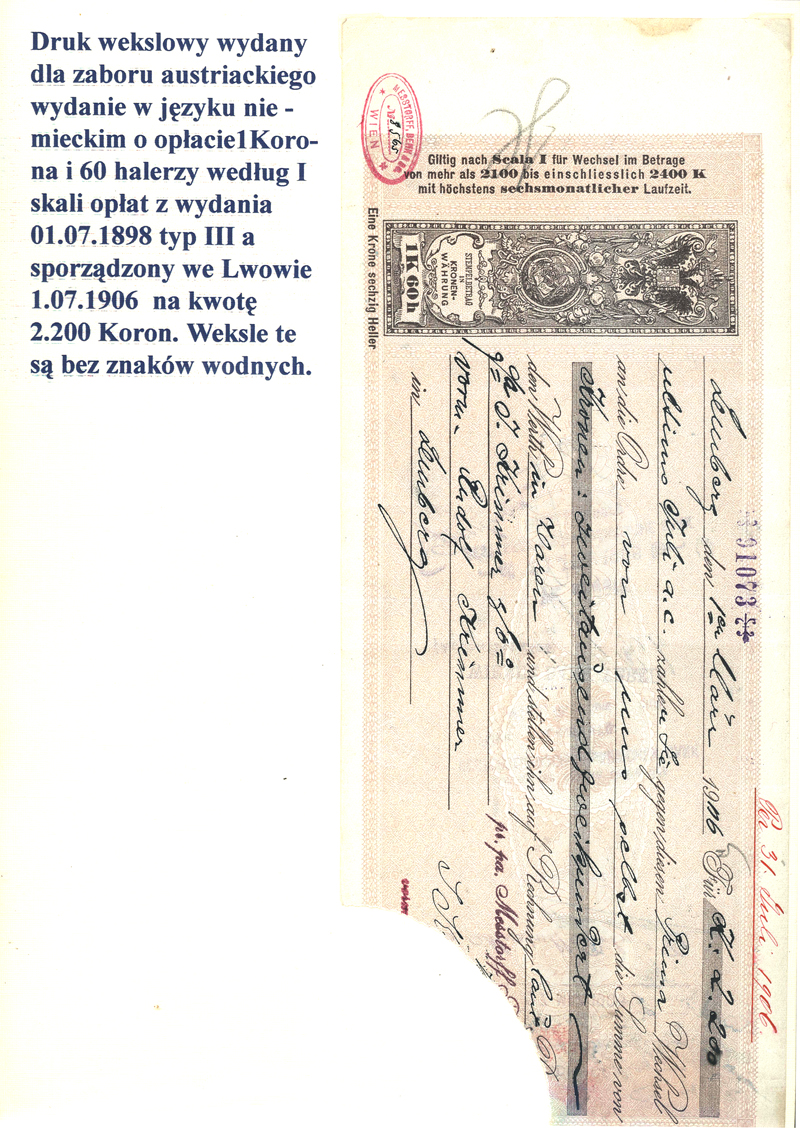 Druk wekslowy wydany
dla zaboru austriackiego
wydanie w języku nie -
mieckim o opłacie1Koro-
na i 60 halerzy według I
skali opłat z wydania
01.07.1898 typ III a
sporządzony we Lwowie
1.07.1906 na kwotę
2.200 Koron. Weksle te
są bez znaków wodnych.
WIEN
Giltig nach Scala I für Wechsel im Betrage
von mehr als 2100 bis einschliesslich 2400 K
mit höchstens sechsmonatlicher Laufzeit.
Eine Krone sechzig Heller
STEMPELBETRAG
IN
KRONEN-
WÄHRUNG
1K 60h
91073
Per 31. Juli 1906.
Lemberg den 1ten 1906 Für K. 2.200
ultimo Juli a.c. zahlen Sie gegen diesen Prima Wechsel
an die Ordre von uns selbst die Summe von
Kronen: zweitausendzweihundert
den Werth in Waren und stellen ihn auf Rechnung laut
J. Krimmer
vorm. Rudolf Krimmer
in Lemberg
pr. pa. Messtorff